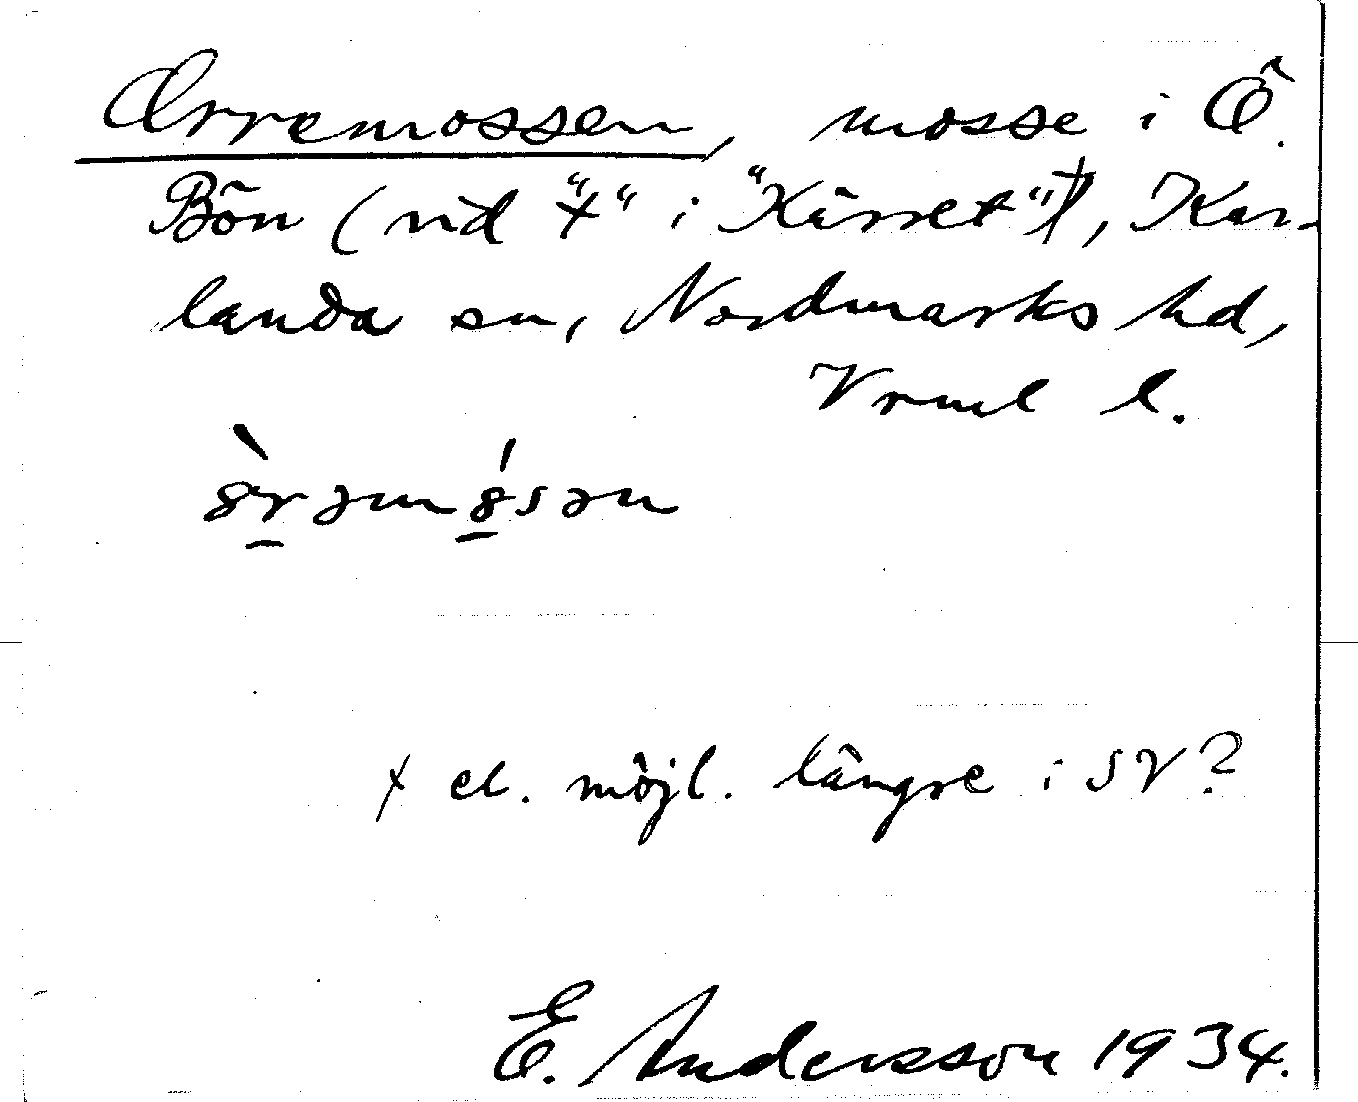 Orremossen, mosse i Ö.
Bön (vid "4" i "Kärret")†, Kar-
landa sn, Nordmarks hd,
Vrml l.
x el. möjl. längre i SV?
E. Andersson 1934.